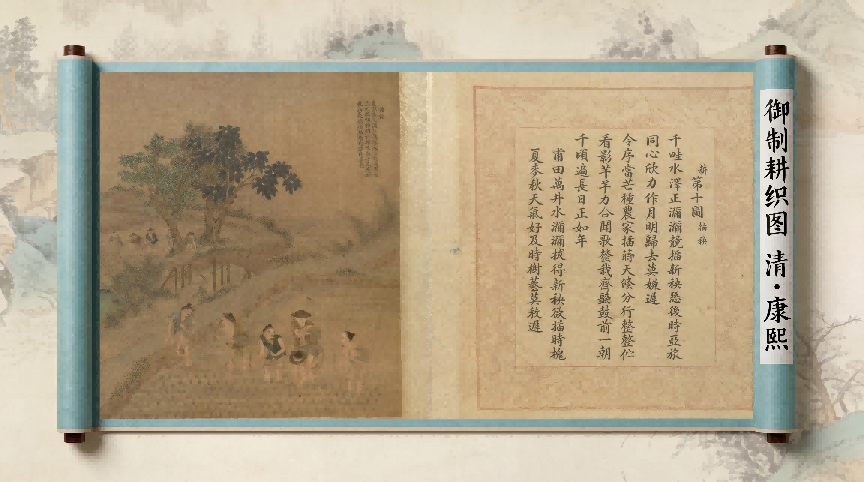 御制耕织图 清·康熙
耕第十圖 插秧
千畦水澤正瀰瀰競插新秧恐後時亞旅
同心欣力作月明歸去莫嫌遲
令序當芒種農家插蒔天倐分行整整佇
看影芊芊力合聞歌發栽齊聽鼓前一朝
千頃遍長日正如年
甫田萬井水瀰瀰拔得新秧欲插時槐
夏麥秋天氣好及時樹蓺莫教遲